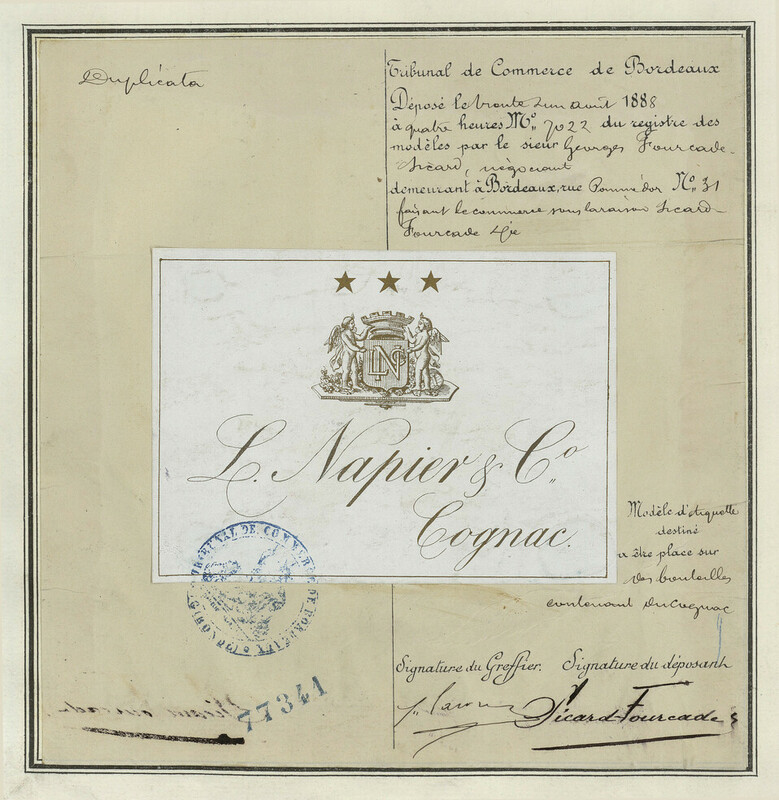 Duplicata
Tribunal de Commerce de Bordeaux
Déposé le trente un août 1888
à quatre heures No. 7022 du registre des
modèles par le sieur Georges Fourcade-
Sicard, négociant
demeurant à Bordeaux, rue Pomme d'or No. 31
faisant le commerce sous la raison Sicard-
Fourcade & Cie
LNCo
L. Napier & Co.
Cognac.
Modèle d'étiquette
destiné
a être place sur
des bouteilles
contenant du Cognac
TRIBUNAL DE COMMERCE DE BORDEAUX
Signature du Greffier. Signature du déposant
Sicard-Fourcade
77341